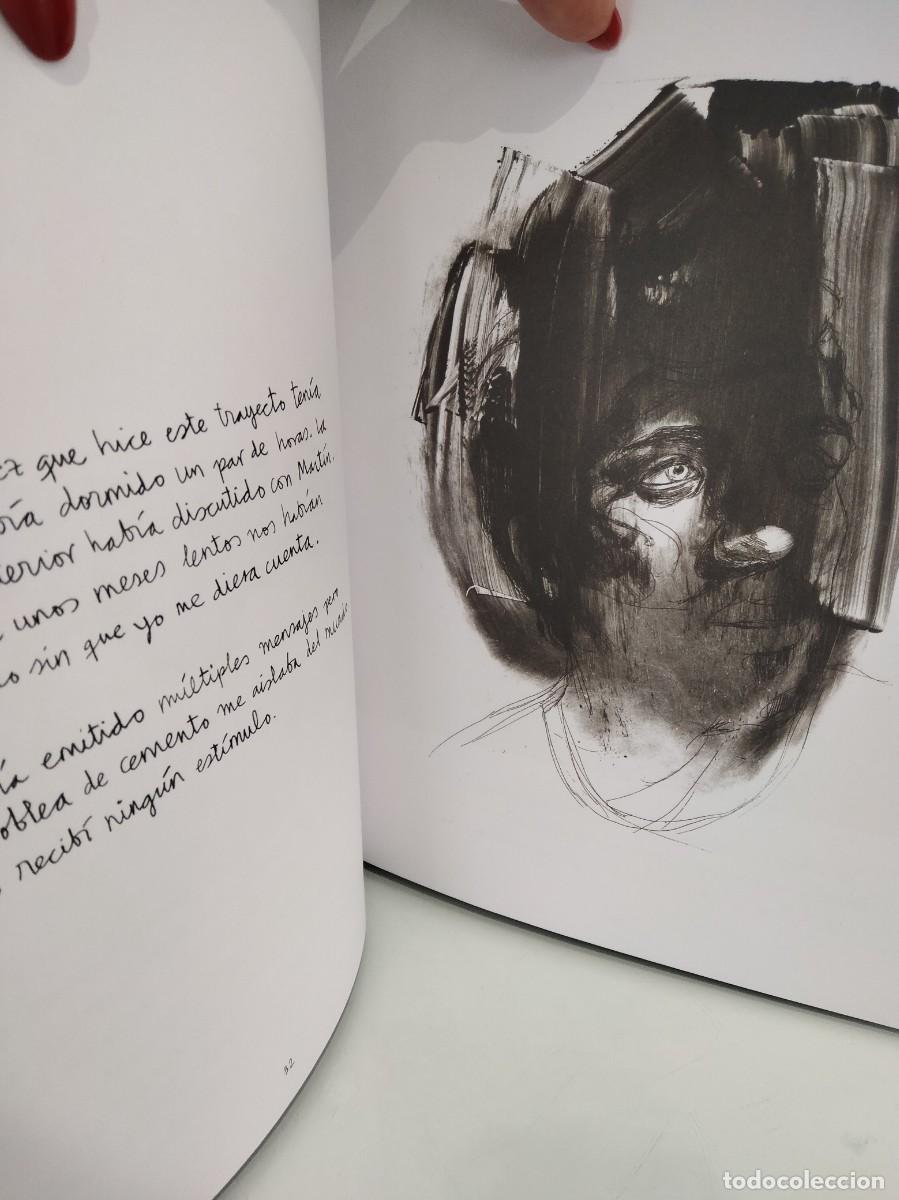 que hice este trayecto tenía
dormido un par de horas. La
había discutido con Martín.
unos meses lentos nos habían
sin que yo me diera cuenta.
emitido múltiples mensajes pero
de cemento me aislaba del mundo
recibí ningún estímulo.
32
todocoleccion